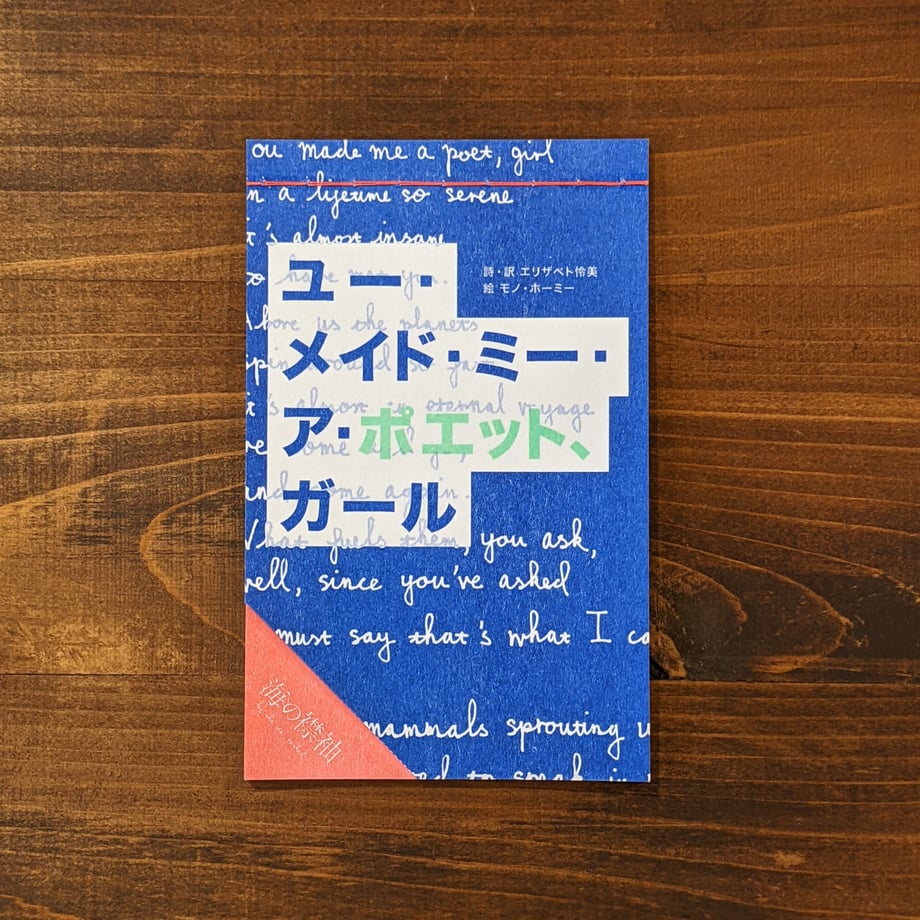 ou made me a poet, girl
n a lifetime so serene
t's almost insane
to have met you.
ユー・
詩・訳 エリザベト怜美
絵 モノ・ホーミー
bove us the planets
メイド・ミー・
spin around so far
t's almost an eternal voyage
ア・ポエット、
we come and go,
and come again.
ガール
What fuels them, you ask,
well, since you've asked
must say that's what I ca
mammals sprouting u
to speak in
海の襟袖